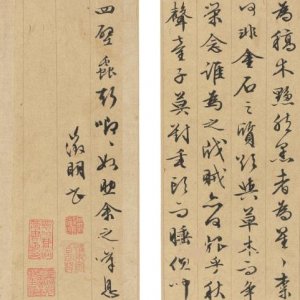 為槁木黟然黑者為星々柰
何非金石之質欲與草木而爭
榮念誰為之戕賊亦何恨乎秋
聲童子莫對垂頭而睡但聞
四壁蟲聲唧々如助余之嘆息
徵明書